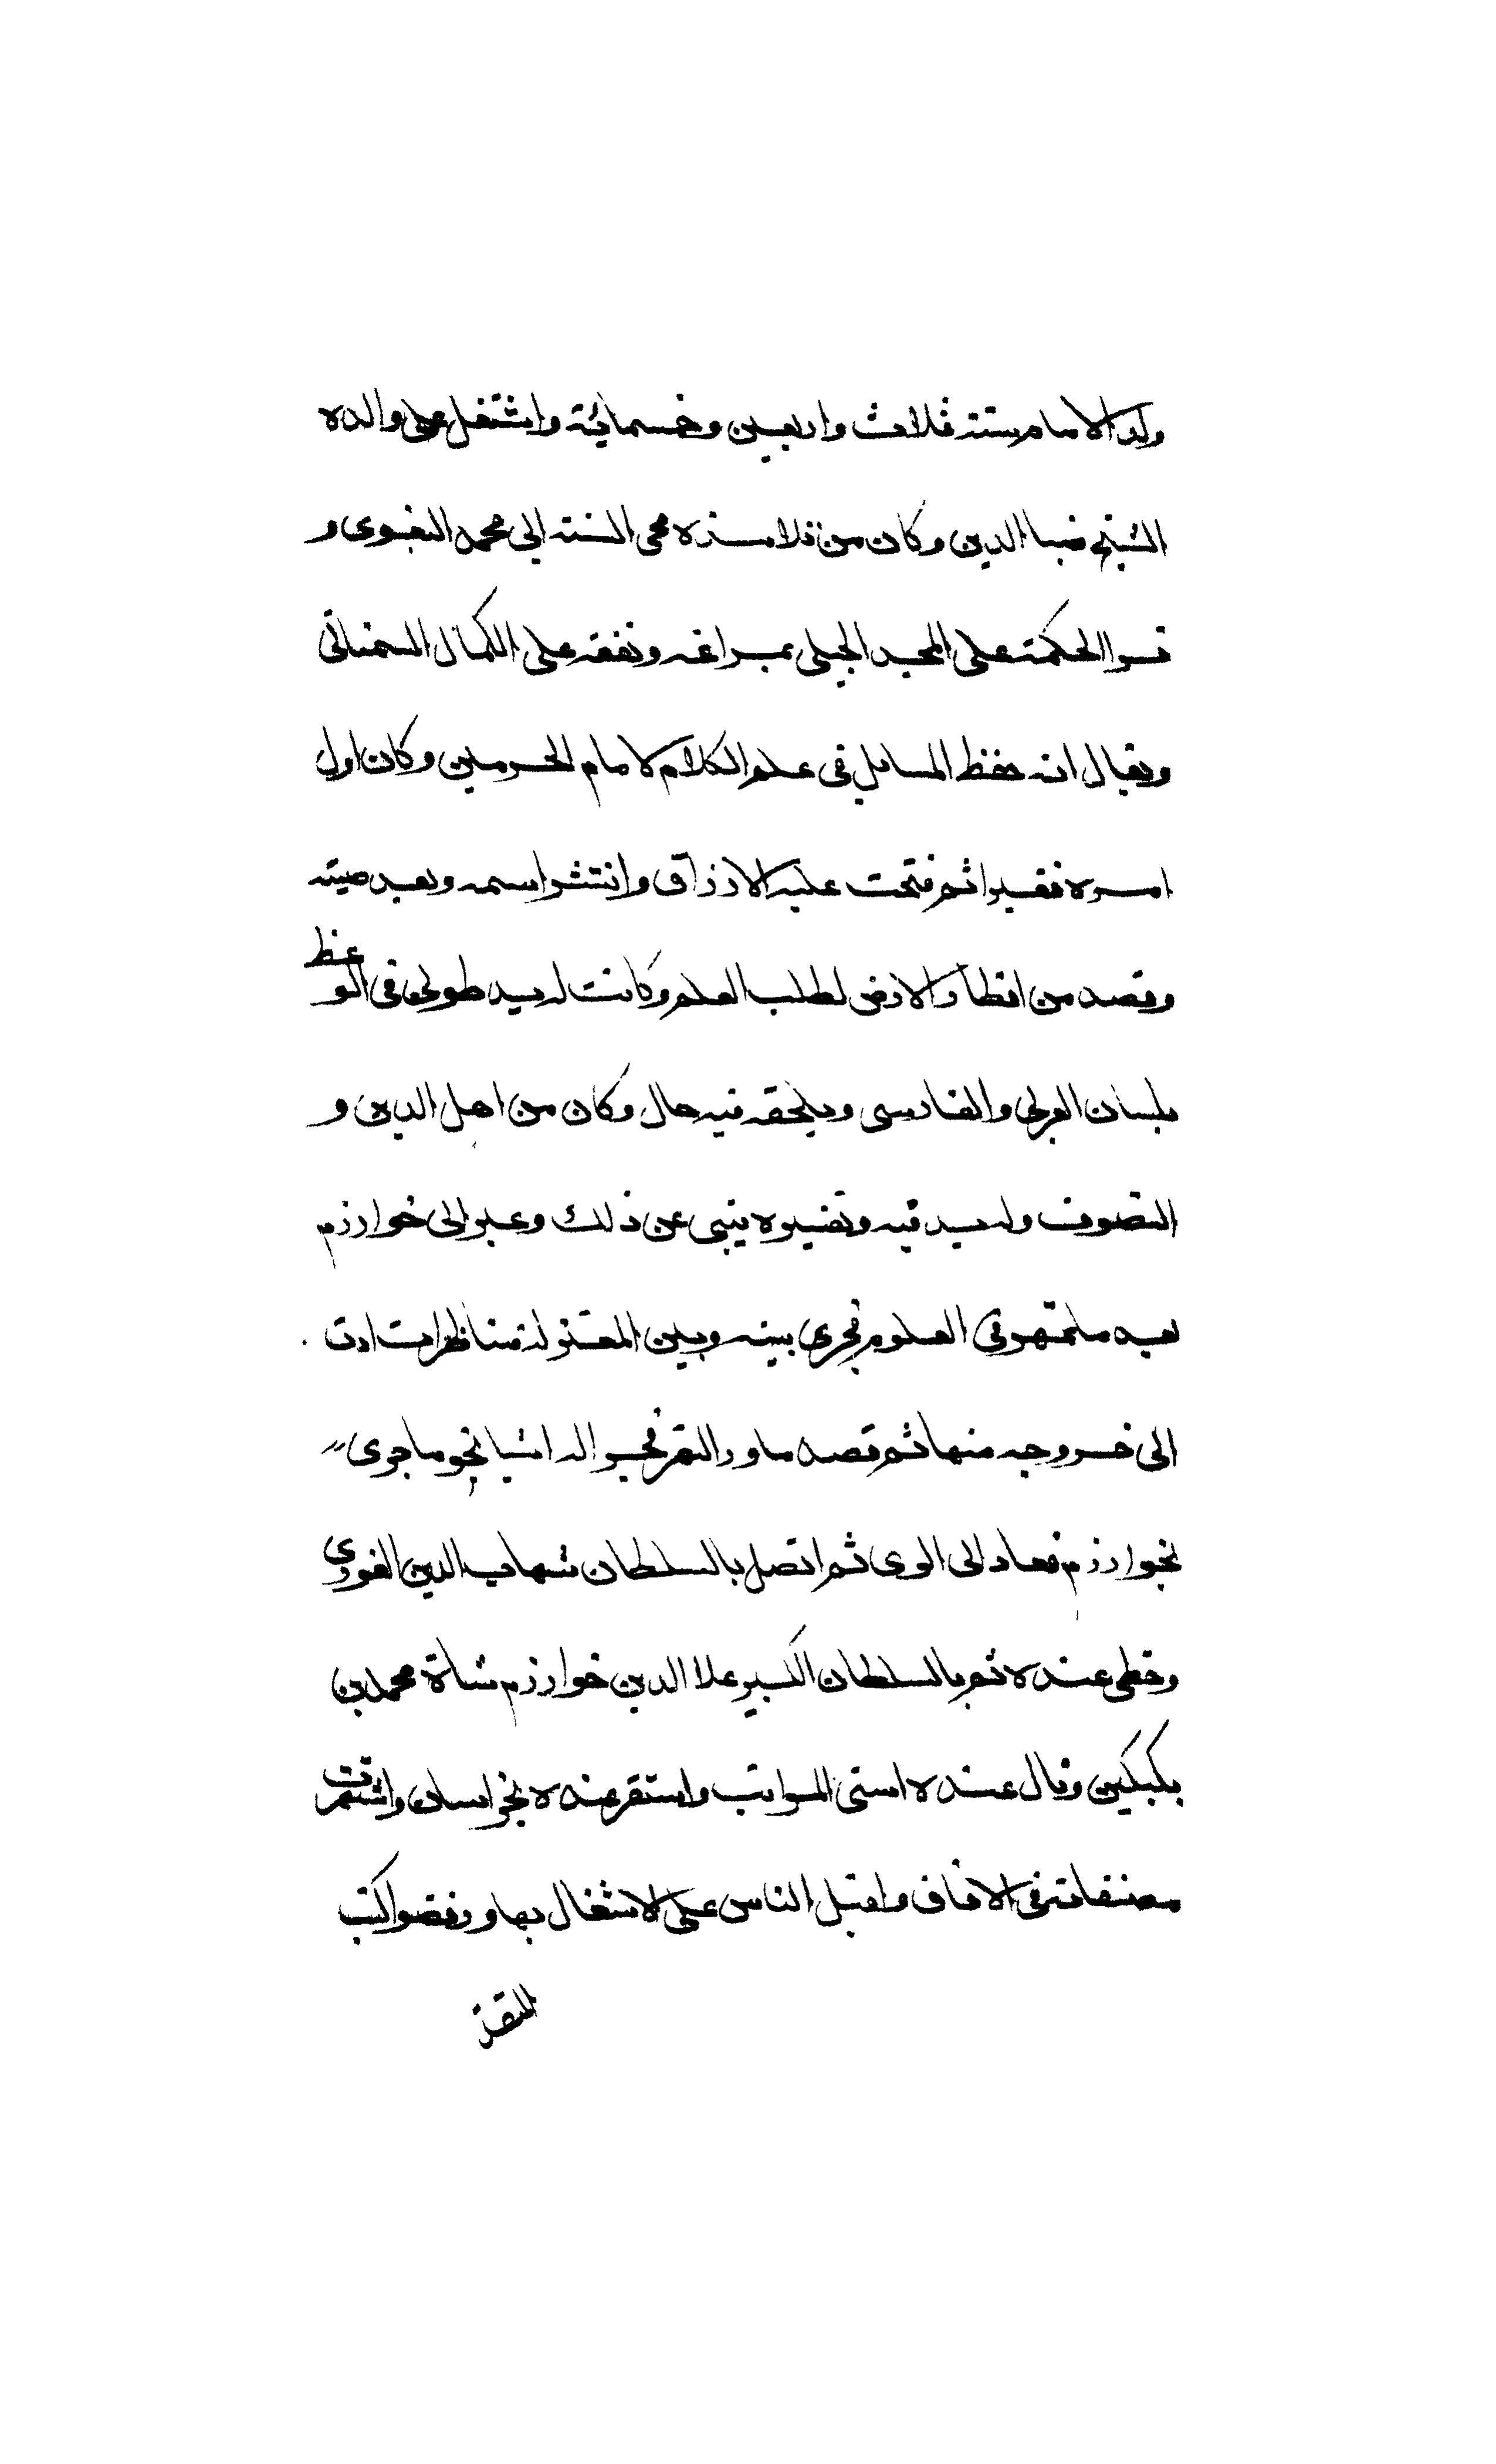 ولد الامام سنة ثلاث واربعين وخمسمائة واشتغل على والده
الشيخ ضيا الدين وكان من تلامذة محى السنة ابى محمد البغوى و
قرا الحكمة على المجد الجيلى بمراغه وتفقه على الكمال السمنانى
ويقال انه حفظ المسايل فى علم الكلام لامام الحرمين وكان اول
امره فقيرا ثم فتحت عليه الارزاق وانتشر اسمه وبعد صيته
وقصد من اقطار الارض لطلب العلم وكانت له يد طولى فى الوعظ
بلسان العربى والفارسى ويلحقه فيه حال وكان من اهل الدين و
التصوف وله يد فيه وتفسيره ينبى عن ذلك وعبر الى خوارزم
بعد ما تمهر فى العلوم فجرى بينه وبين المعتزلة مناظرات ادت
الى خروجه منها ثم قصد ماورا النهر فجرا له اشيا نحو ماجرى
بخوارزم فعاد الى الرى ثم اتصل بالسلطان شهاب الدين الغورى
وحظى عنده ثم بالسلطان الكبير علا الدين خوارزم شاة محمد بن
بكبكين ونال عنده اسنى المراتب واستقر عنده بخراسان واشتهرت
مصنفاته فى الافاق واقبل الناس على الاشغال بها ورفضوا كتب